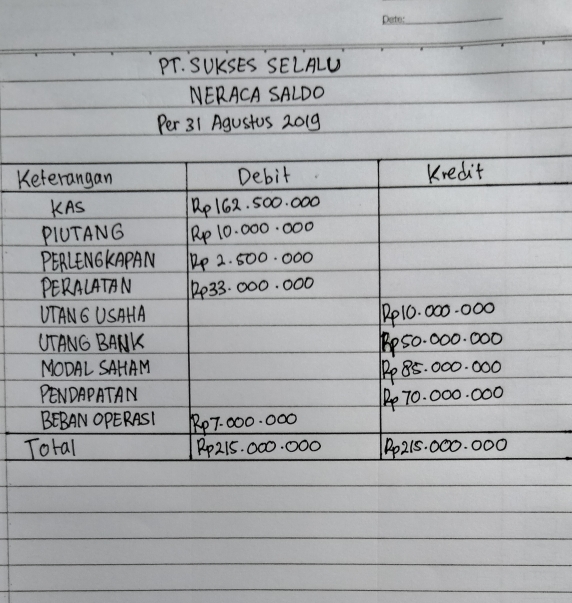 Date:
PT. SUKSES SELALU
NERACA SALDO
Per 31 Agustus 2019
Keterangan Debit Kredit
KAS Rp 162.500.000
PIUTANG Rp 10.000.000
PERLENGKAPAN Rp 2.500.000
PERALATAN Rp33.000.000
UTANG USAHA Rp10.000.000
UTANG BANK Rp50.000.000
MODAL SAHAM Rp 85.000.000
PENDAPATAN Rp 70.000.000
BEBAN OPERASI Rp7.000.000
Total Rp215.000.000 Rp215.000.000